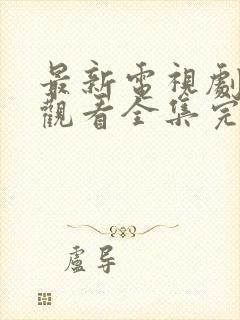 最新電視劇
觀看全集完
盧導